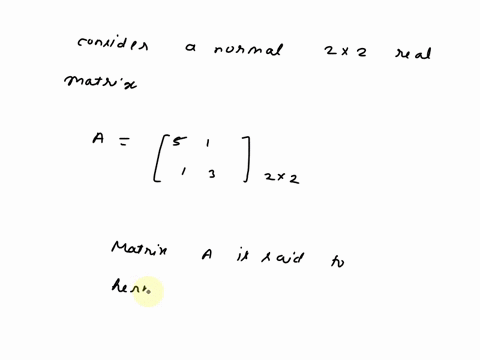 consider a normal 2x2 real
matrix
A = [5 1
1 3] 2x2
Matrix A is said to